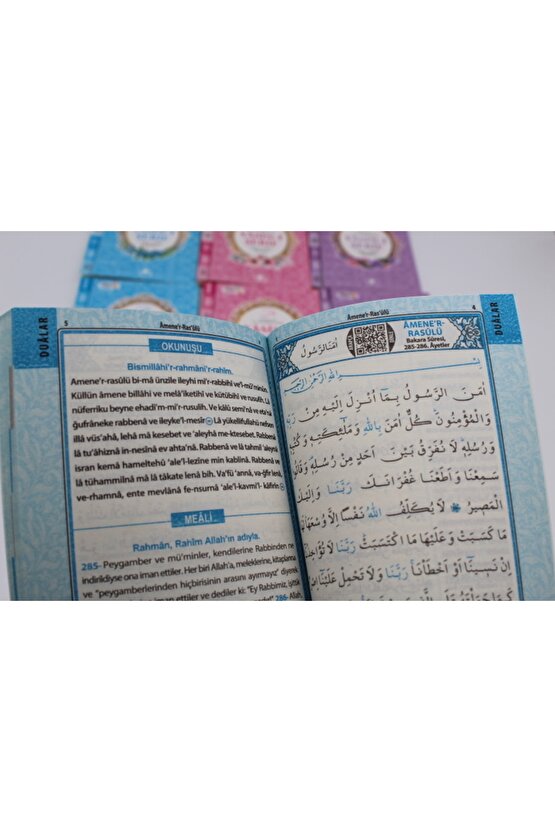 5
Âmene'r-Rasûlü
DUÂLAR
OKUNUŞU
Bismillâhi'r-rahmâni'r-rahîm.
Amene'r-rasûlü bi-mâ ünzile ileyhi mi'r-rabbihî ve'l-mü'minûn.
Küllün âmene billâhi ve melâ'iketihî ve kütübihî ve rusulih. Lâ
nüferriku beyne ehadi'm-mi'r-rusulih. Ve kâlû semi'nâ ve eta'nâ
ğufrâneke rabbenâ ve ileyke'l-mesîr Lâ yükellifullahü nefsen
illâ vüs'ahâ, lehâ mâ kesebet ve 'aleyhâ me-ktesebet. Rabbenâ
lâ tu'âhiznâ in-nesînâ ev ahta'nâ. Rabbenâ ve lâ tahmil 'aleynâ
isran kemâ hameltehû 'ale'l-lezîne min kablinâ. Rabbenâ ve
lâ tühammilnâ mâ lâ tâkate lenâ bih. Va'fü 'annâ, va-ğfir lenâ,
ve-rhamnâ, ente mevlânâ fe-nsurnâ 'ale'l-kavmi'l- kâfirîn
MEÂLİ
Rahmân, Rahîm Allah'ın adıyla.
285- Peygamber ve mü'minler, kendilerine Rabbinden ne
indirildiyse ona iman ettiler. Her biri Allah'a, meleklerine, kitaplarına
ve "peygamberlerinden hiçbirisinin arasını ayırmayız" diyerek,
iman ettiler ve dediler ki: "Ey Rabbimiz, işittik
286- Allah,
4
Âmene'r-Rasûlü
DUÂLAR
ÂMENE'R-
RASÛLÜ
Bakara Sûresi,
285-286. Âyetler
اٰمَنَ الرَّسُولُ
اللهِ الرَّحْمٰنِ الرَّحِيمِ
اٰمَنَ الرَّسُولُ بِمَا اُنْزِلَ اِلَيْهِ مِنْ رَبِّهِ
وَالْمُؤْمِنُونَ كُلٌّ اٰمَنَ بِاللهِ وَمَلٰئِكَتِهِ وَكُتُبِهِ
وَرُسُلِهِ لَا نُفَرِّقُ بَيْنَ اَحَدٍ مِنْ رُسُلِهِ وَقَالُوا
سَمِعْنَا وَاَطَعْنَا غُفْرَانَكَ رَبَّنَا وَاِلَيْكَ
الْمَصِيرُ لَا يُكَلِّفُ اللهُ نَفْسًا اِلَّا وُسْعَهَا لَهَا
مَا كَسَبَتْ وَعَلَيْهَا مَا اكْتَسَبَتْ رَبَّنَا لَا تُؤَاخِذْنَا
اِنْ نَسِينَا اَوْ اَخْطَأْنَا رَبَّنَا وَلَا تَحْمِلْ عَلَيْنَا